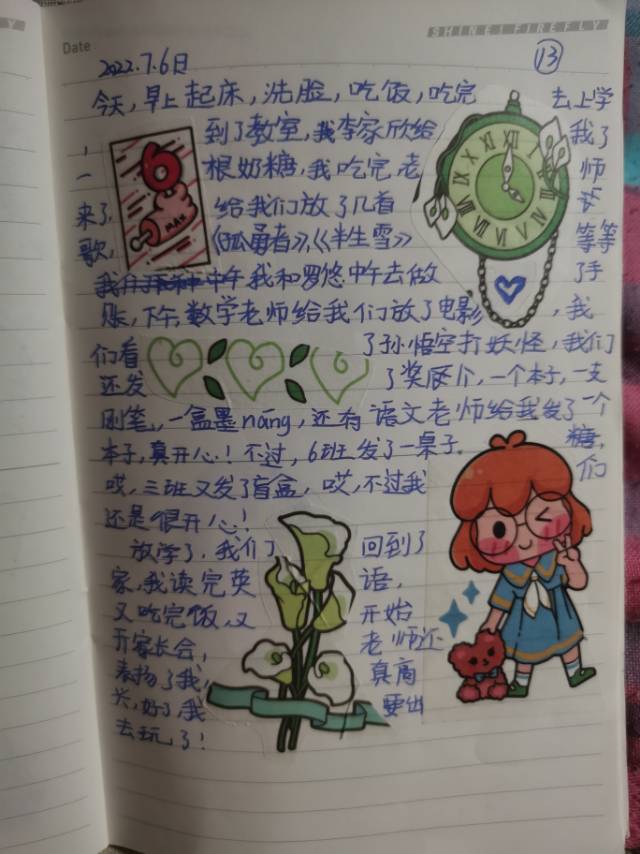 SHINEIFIREFLY
Date
2022.7.6日
13
今天,早上起床,洗脸,吃饭,吃完 去上学
,到了教室,我李家欣给 我了
一根奶糖,我吃完,老 师
来了,给我们放了几首
歌,《孤勇者》,《半生雪》 等等
中午,我和罗悠中午去做 了手
账,下午,数学老师给我们放了电影 ,我
们看 了孙悟空打妖怪,我们
还发 了奖 一个本子,一支
刚笔,一盒墨nāng,还有语文老师给我发了一个
本子,真开心!不过,6班发了一桌子 糖,
哎,三班又发了盲盒,哎,不过我 们
还是很开心!
放学了,我们 回到了
家,我读完英 语,
又吃完饭,又 开始
开家长会, 老师还
表扬了我, 真高
兴,好了,我 要出
去玩了!
6
MAX
XII